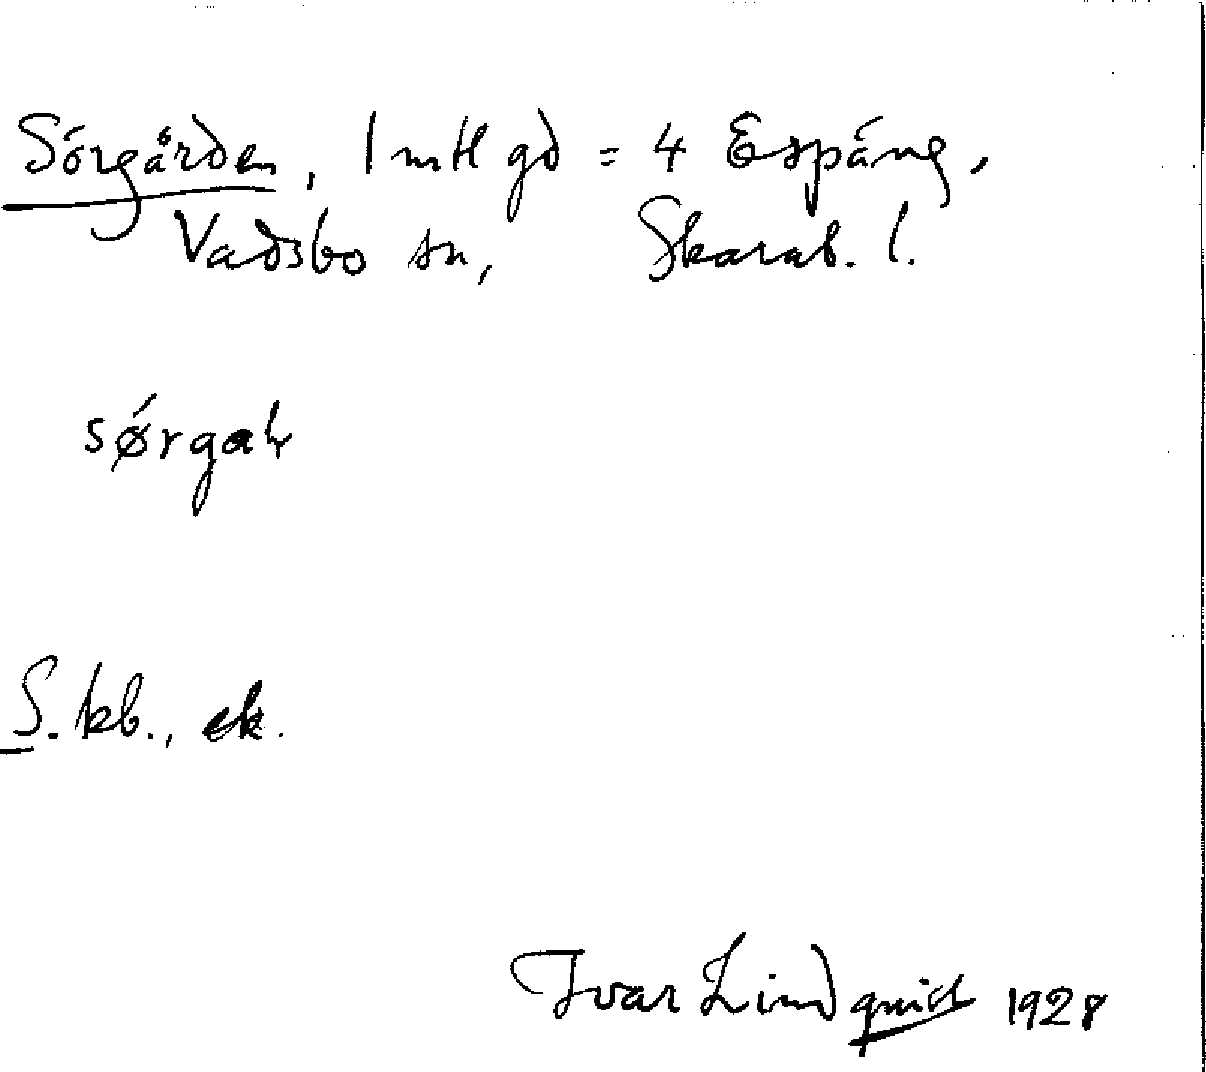 Sörgården, 1 mtl gd = 4 Espäng,
Vadsbo sn, Skarab. l.
sǿrgaɫr
S. kb., ek.
Ivar Lindquist 1928